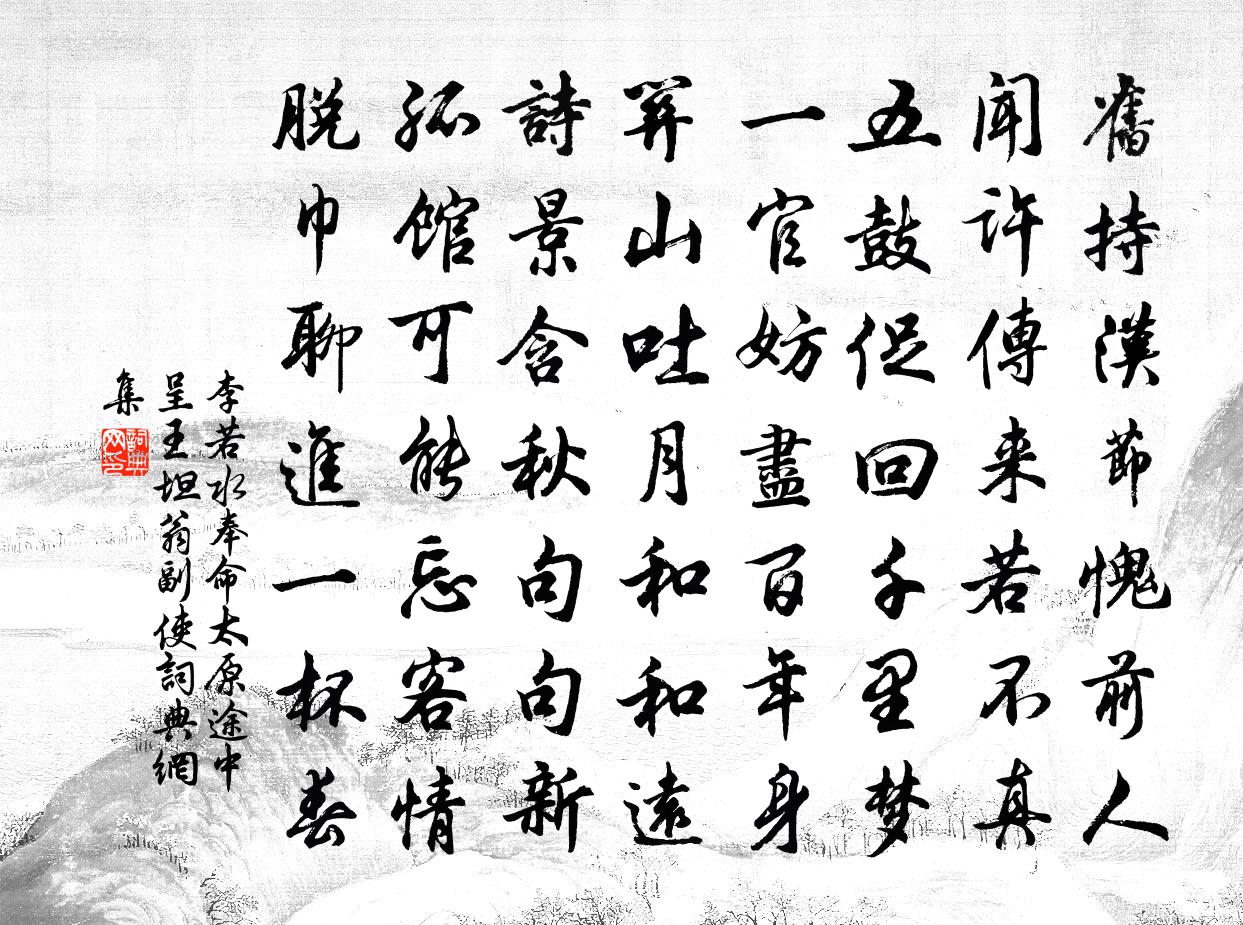 舊持漢節愧前人
聞許傳来若不真
五鼓促回千里梦
一官妨盡百年身
笄山吐月和和遠
詩景含秋句句新
孤馆可能忘客情
脱巾聊進一杯春
李若水奉命太原途中
呈王坦翁副使詞典網
集